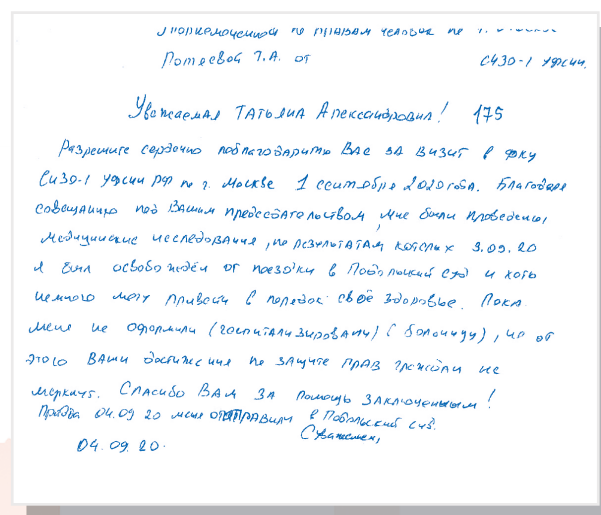 Уполномоченной по правам человек по г. Москве
Потяевой Т.А. от СИЗО-1 УФСИН.
Уважаемая Татьяна Александровна! 175
Разрешите сердечно поблагодарить Вас за визит в ФКУ
СИЗО-1 УФСИН РФ по г. Москве 1 сентября 2020 года. Благодаря
совещанию под Вашим председательством, мне были проведены,
медицинские исследования, по результатам которых 3.09.20
я был освобождён от поездки в Подольский суд и хоть
немного могу привести в порядок своё здоровье. Пока
меня не оформили (госпитализировали) (больницу), но от
этого Ваши достижения по защите прав граждан не
меркнут. Спасибо Вам за помощь заключенным!
Правда 04.09 20 меня отправили в Подольский суд.
С Уважением,
04.09.20.